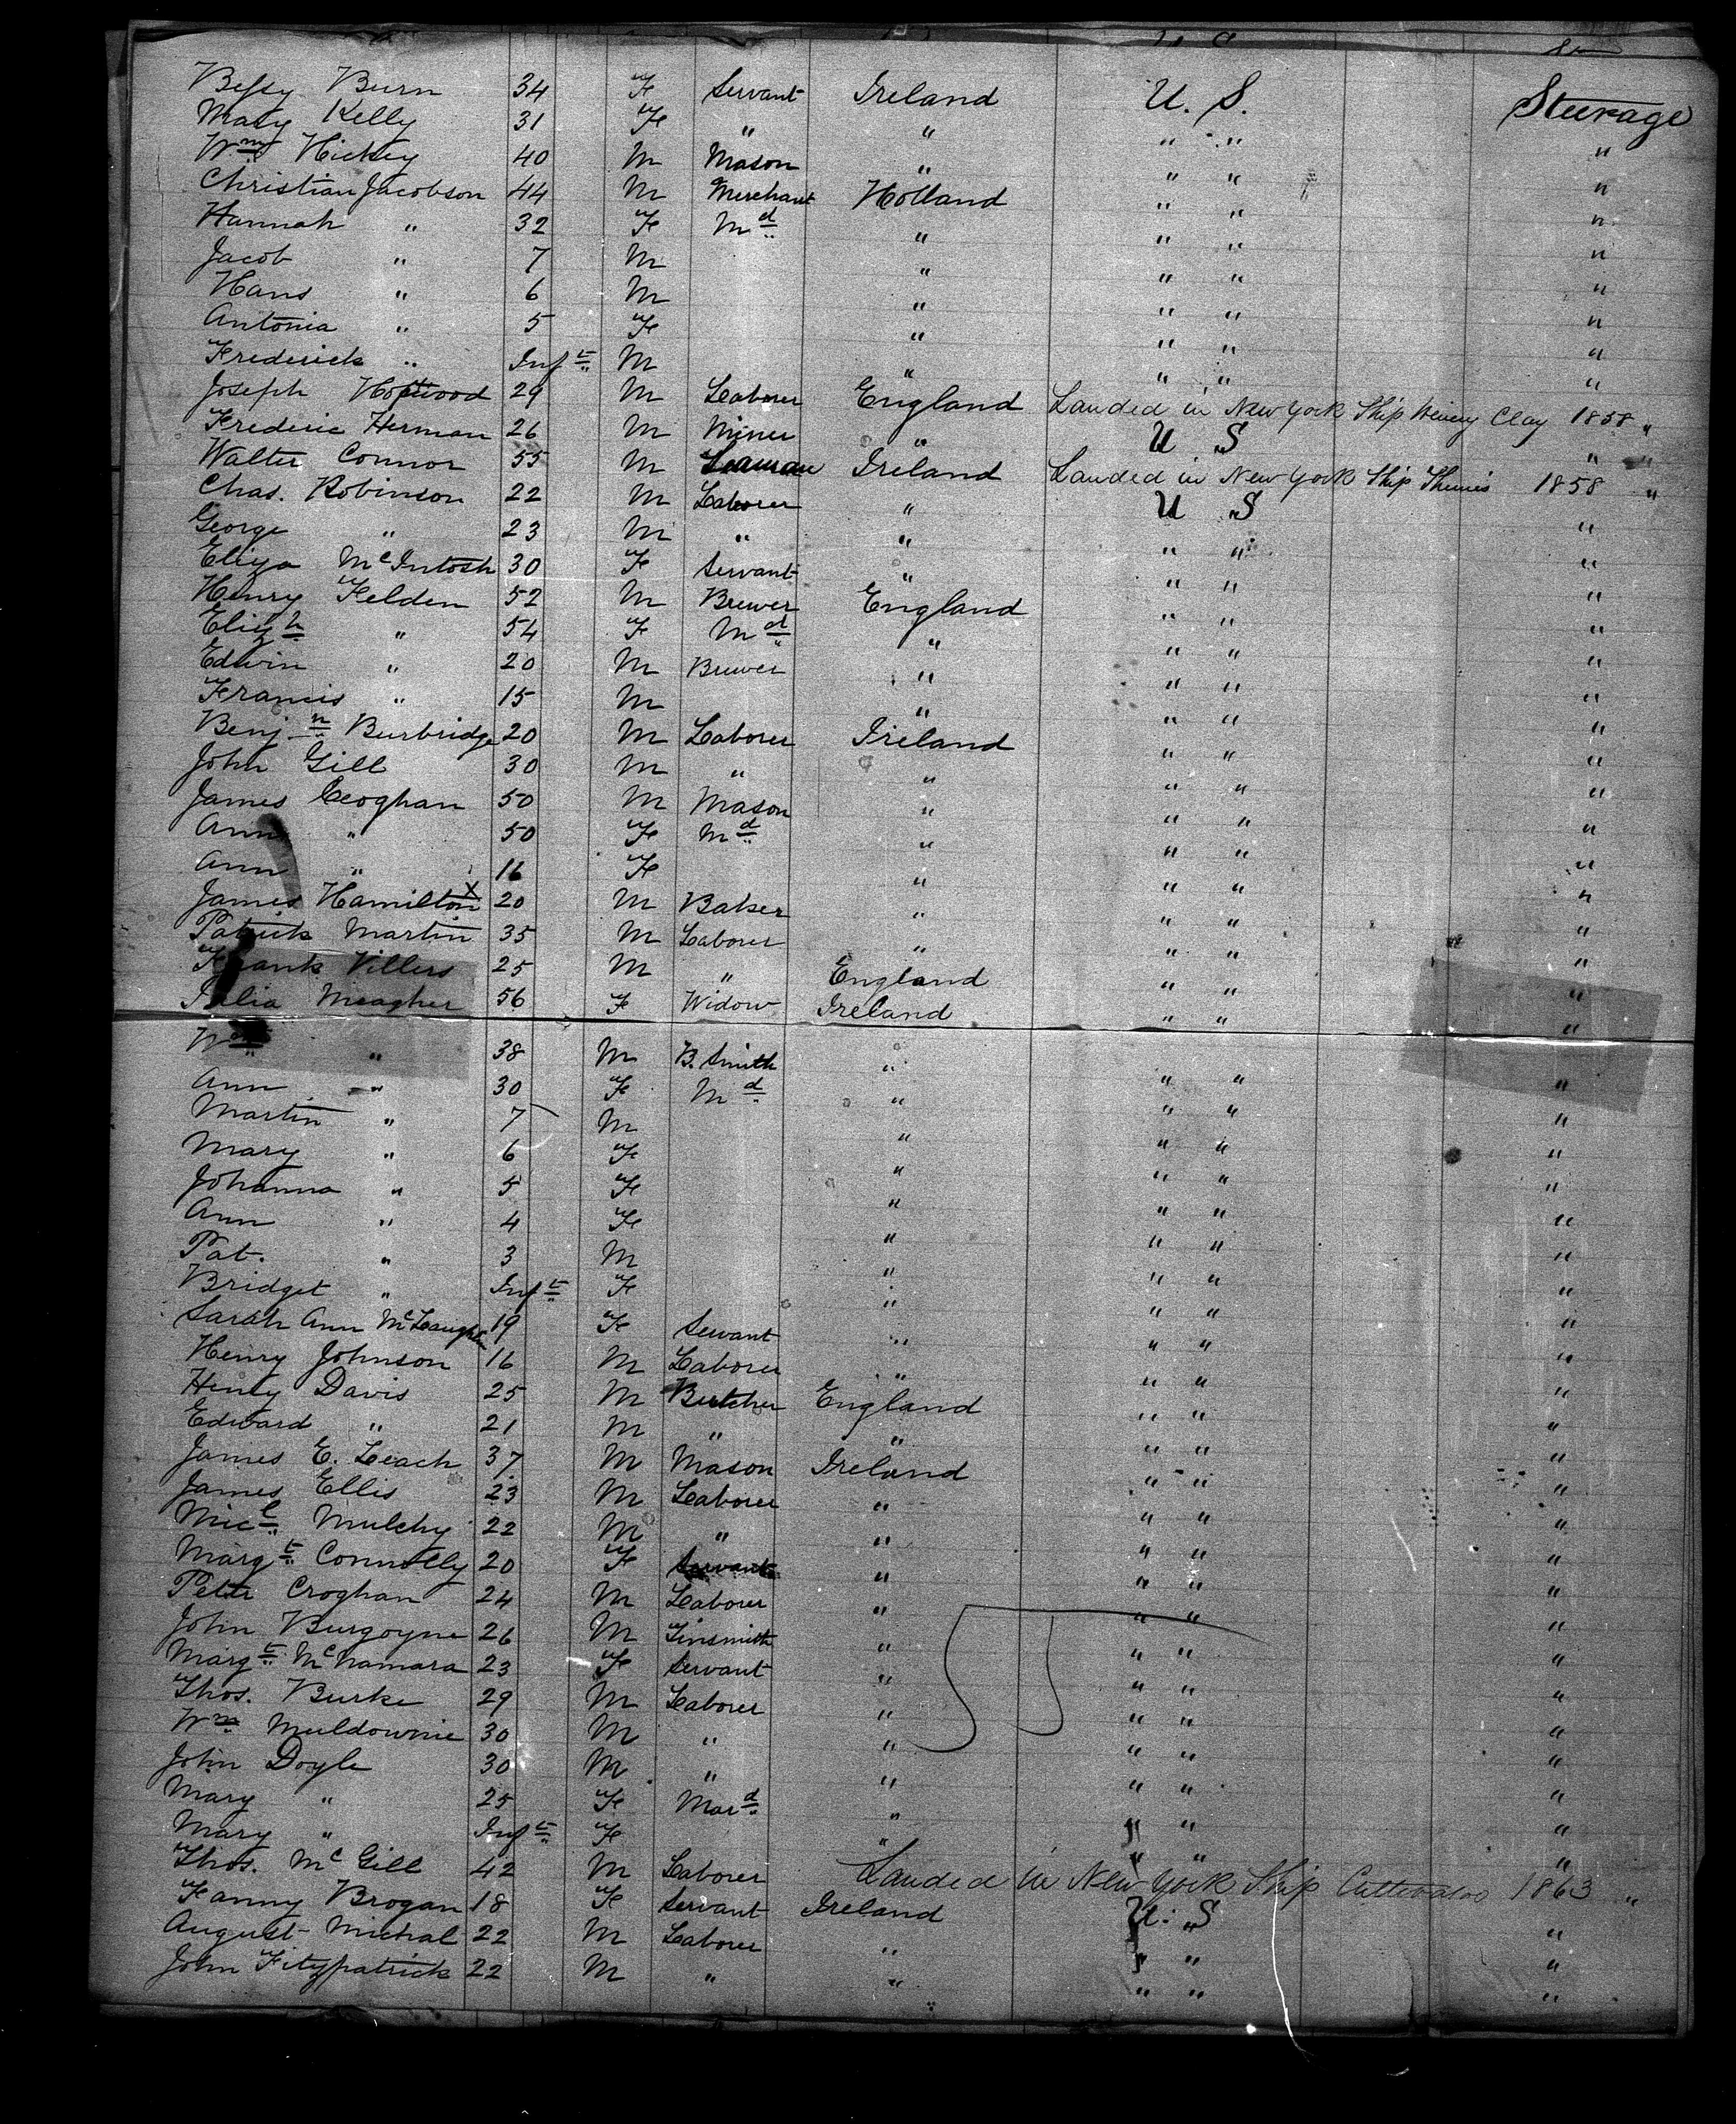 Bessy Burn 34 F Servant Ireland U. S. Steerage
Mary Kelly 31 F " " " " "
Wm Hickey 40 M Mason " " " "
Christian Jacobson 44 M Merchant Holland " " "
Hannah " 32 F Md " " " "
Jacob " 7 M " " " "
Hans " 6 M " " " "
Antonia " 5 F " " " "
Frederick " Inft M " " " "
Joseph Hopwood 29 M Laborer England Landed in New York Ship Henry Clay 1858 "
Frederic Herman 26 M Miner " U S "
Walter Connor 55 M Seaman Ireland Landed in New York Ship 1858 "
Chas. Robinson 22 M Laborer " U S "
George " 23 M " " " " "
Eliza McIntosh 30 F Servant " " " "
Henry Felden 52 M Brewer England " " "
Elizh " 54 F Md " " " "
Edwin " 20 M Brewer " " " "
Francis " 15 M " " " "
Benjn Burbridge 20 M Laborer Ireland " " "
John Gill 30 M " " " " "
James Geoghan 50 M Mason " " " "
Ann " 50 F Md " " " "
Ann " 16 F " " " "
James Hamilton X 20 M Baker " " " "
Patrick Martin 35 M Laborer " " " "
Frank Villers 25 M " England " " "
Julia Meagher 56 F Widow Ireland " " "
Wm " 38 M B. Smith " " " "
Ann " 30 F Md " " " "
Martin " 7 M " " " "
Mary " 6 F " " " "
Johanna " 5 F " " " "
Ann " 4 F " " " "
Pat. " 3 M " " " "
Bridget " Inft F " " " "
Sarah Ann McLaughlin 19 F Servant " " " "
Henry Johnson 16 M Laborer " " " "
Henry Davis 25 M Butcher England " " "
Edward " 21 M " " " " "
James E. Leach 37 M Mason Ireland " " "
James Ellis 23 M Laborer " " " "
Micl Mulchy 22 M " " " " "
Margt Connolly 20 F Servant " " " "
Peter Croghan 24 M Laborer " " " "
John Burgoyne 26 M Tinsmith " " " "
Margt McNamara 23 F Servant " " " "
Thos. Burke 29 M Laborer " " " "
Wm Muldownie 30 M " " " " "
John Doyle 30 M " " " " "
Mary " 25 F Mard " " " "
Mary " Inft F " " " "
Thos. McGill 42 M Laborer Landed in New York Ship Cultivator 1863 "
Fanny Brogan 18 F Servant Ireland U. S "
August Michal 22 M Laborer " " " "
John Fitzpatrick 22 M " " " " "